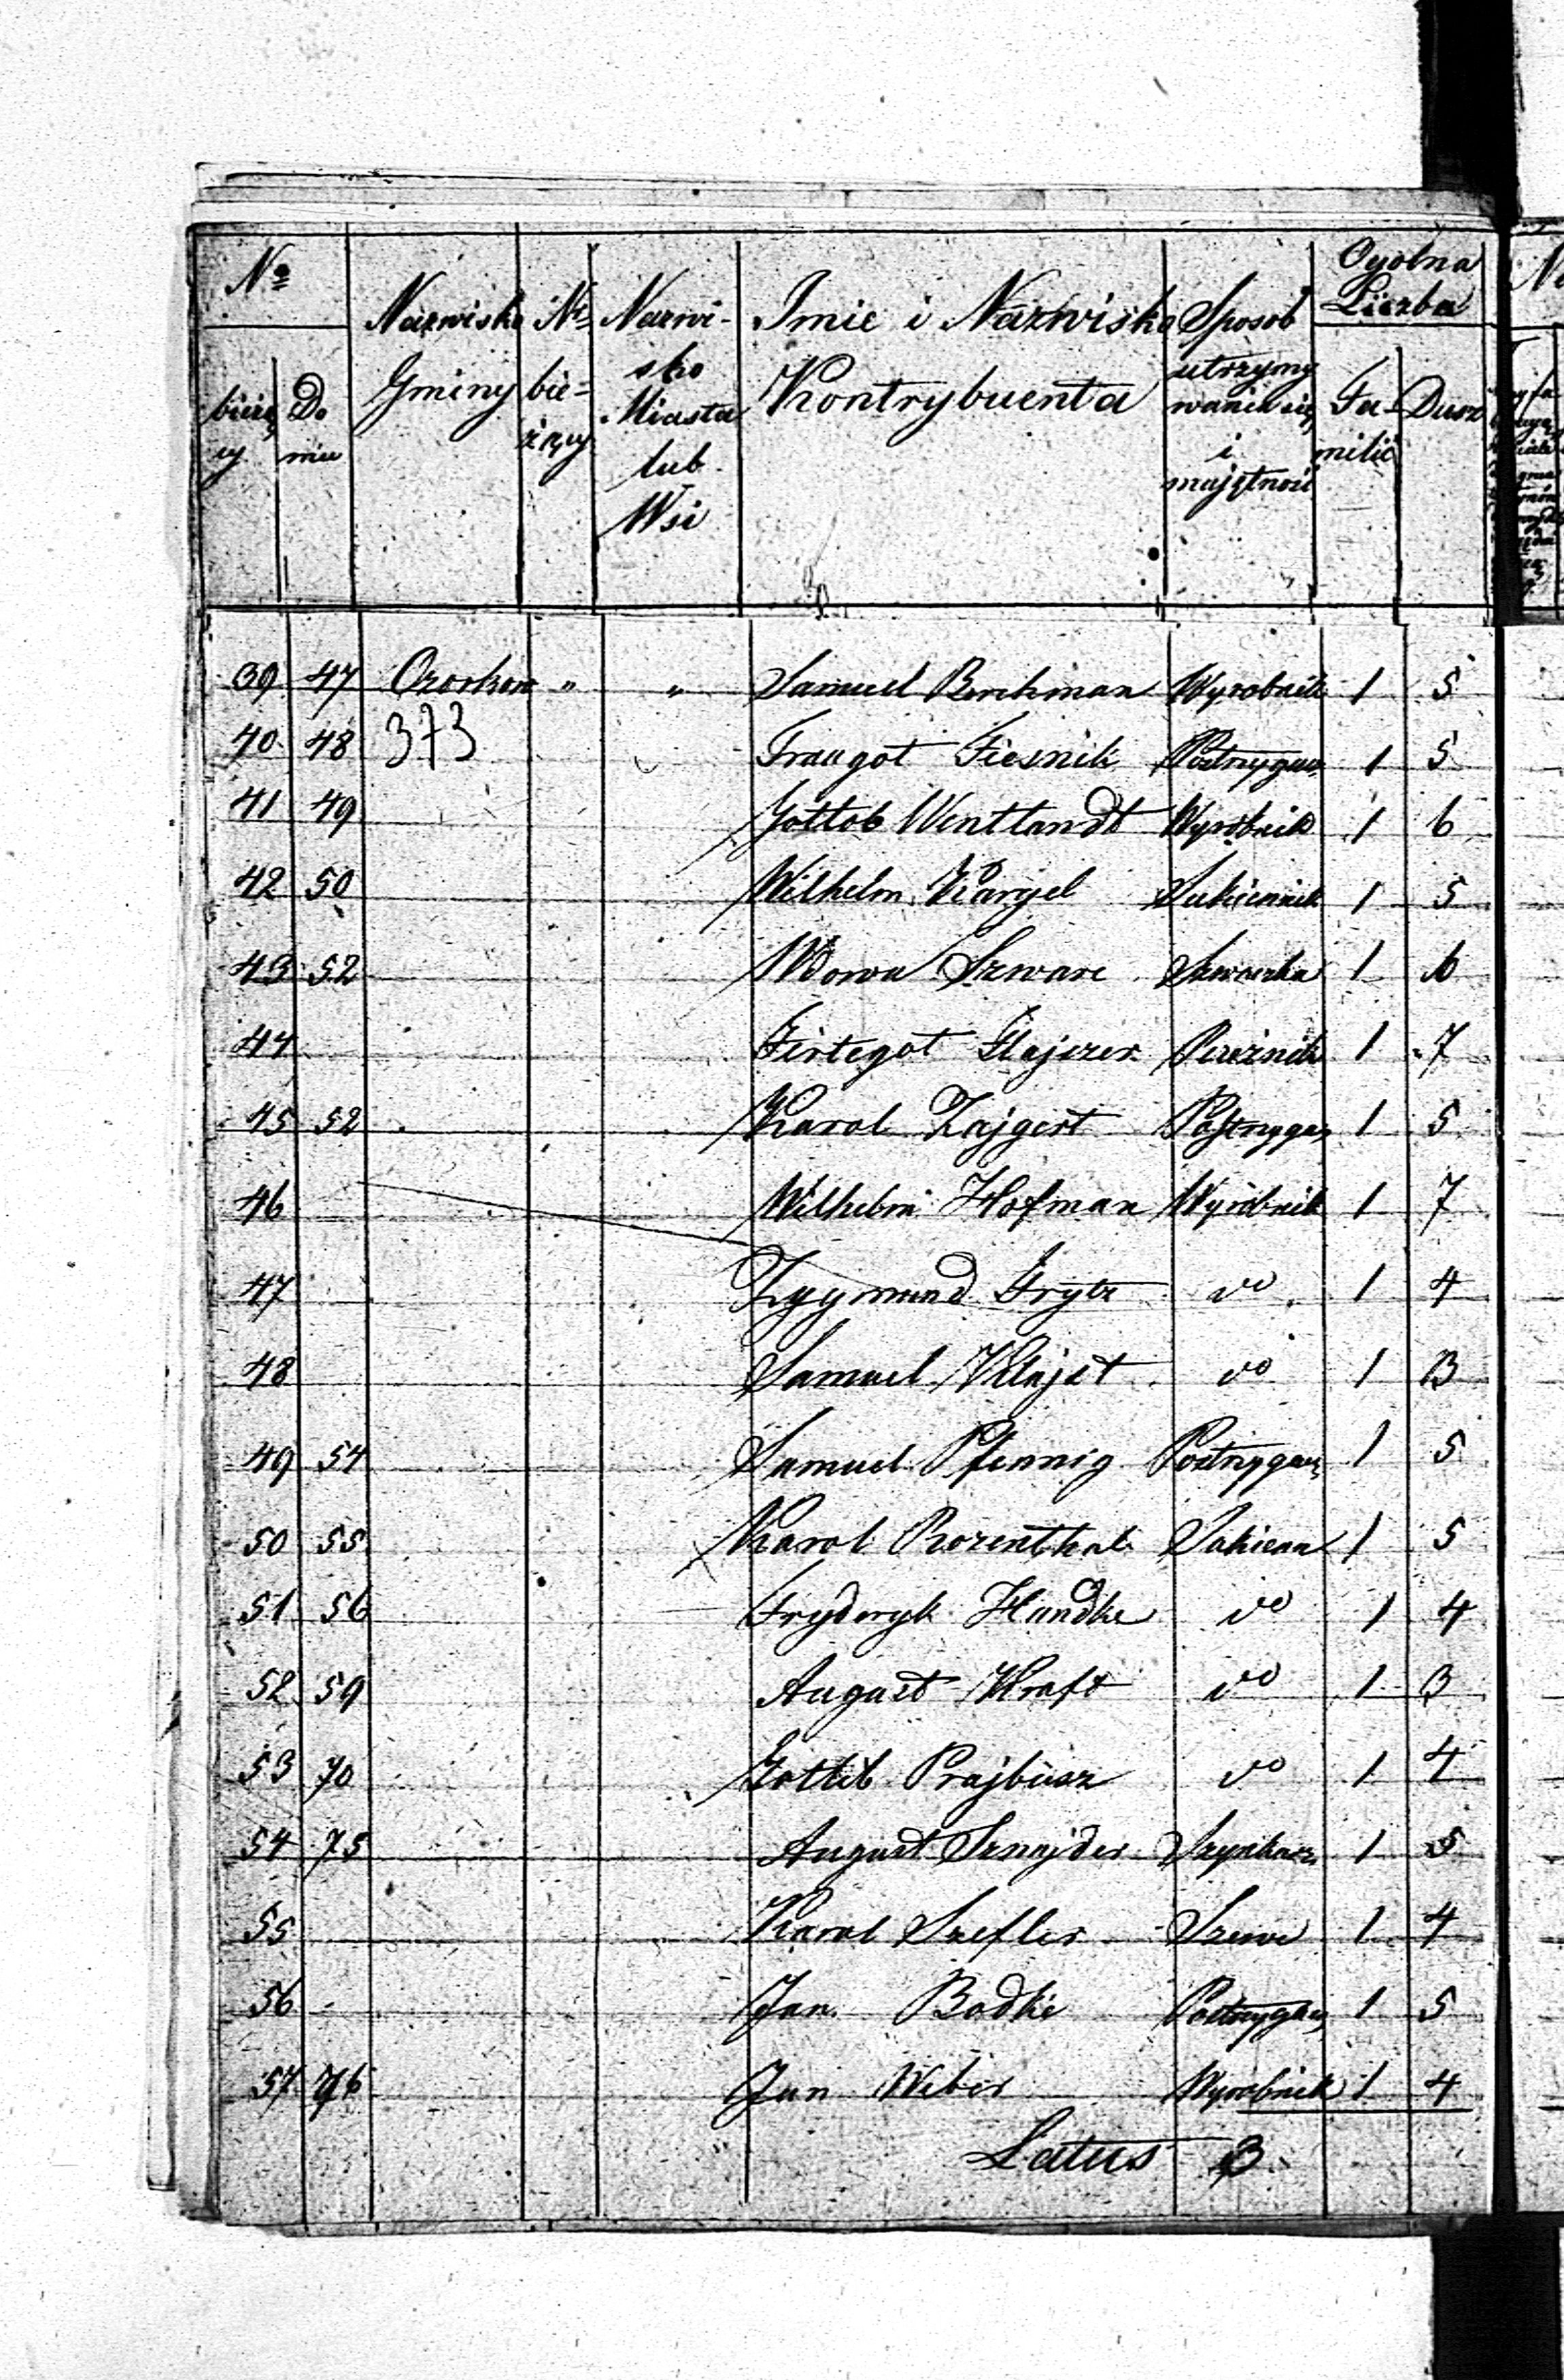 No
bieżący
Domu
Nazwisko Gminy
No bieżący
Nazwisko Miasta lub Wsi
Imie i Nazwisko Kontrybuenta
Sposob utrzymywania się i majętność
Ogolna Liczba
Familii
Dusz
39 47 Ozorkow " " Samuel Berchman Wyrobnik 1 5
40 48 373 Traugot Fiesnik Postrzygacz 1 5
41 49 Gottob Wentlandt Wyrobnik 1 6
42 50 Wilhelm Kargel Sukiennik 1 5
43 52 Wdowa Szwarc Szwaczka 1 6
44 Firtegot Glajzer 1 7
45 52 Karol Zajgert Postrzygacz 1 5
46 Wilhelm Hofman Wyrobnik 1 7
47 Zygmund Frytz do 1 4
48 Samuel Klajst do 1 3
49 54 Samuel Pfennig Postrzygacz 1 5
50 55 Karol Rozenthal Sukienn 1 5
51 56 Fryderyk Handke do 1 4
52 59 August Kraft do 1 3
53 70 Gottlib Prajbisz do 1 4
54 75 August Sznajder Szynkarz 1 5
55 Karol Szefler Szewc 1 4
56 Jan Bodke Postrzygacz 1 5
57 76 Jan Weber Wyrobnik 1 4
Latus 3